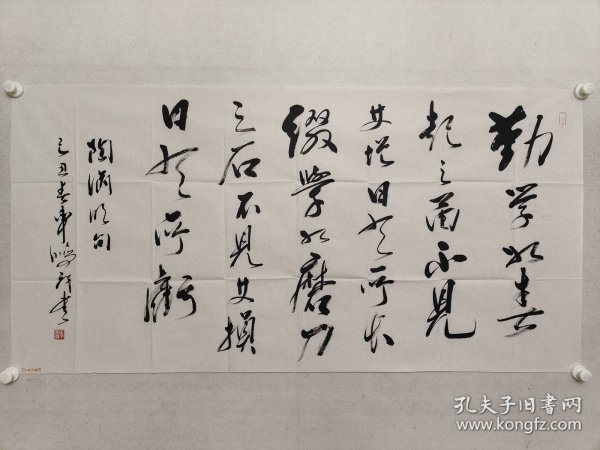 勤学如春
起之苗不见
其增日有所长
缀学如磨刀
之石不见其损
日有所亏
陶渊明句
己丑春
孔夫子旧书网
www.kongfz.com